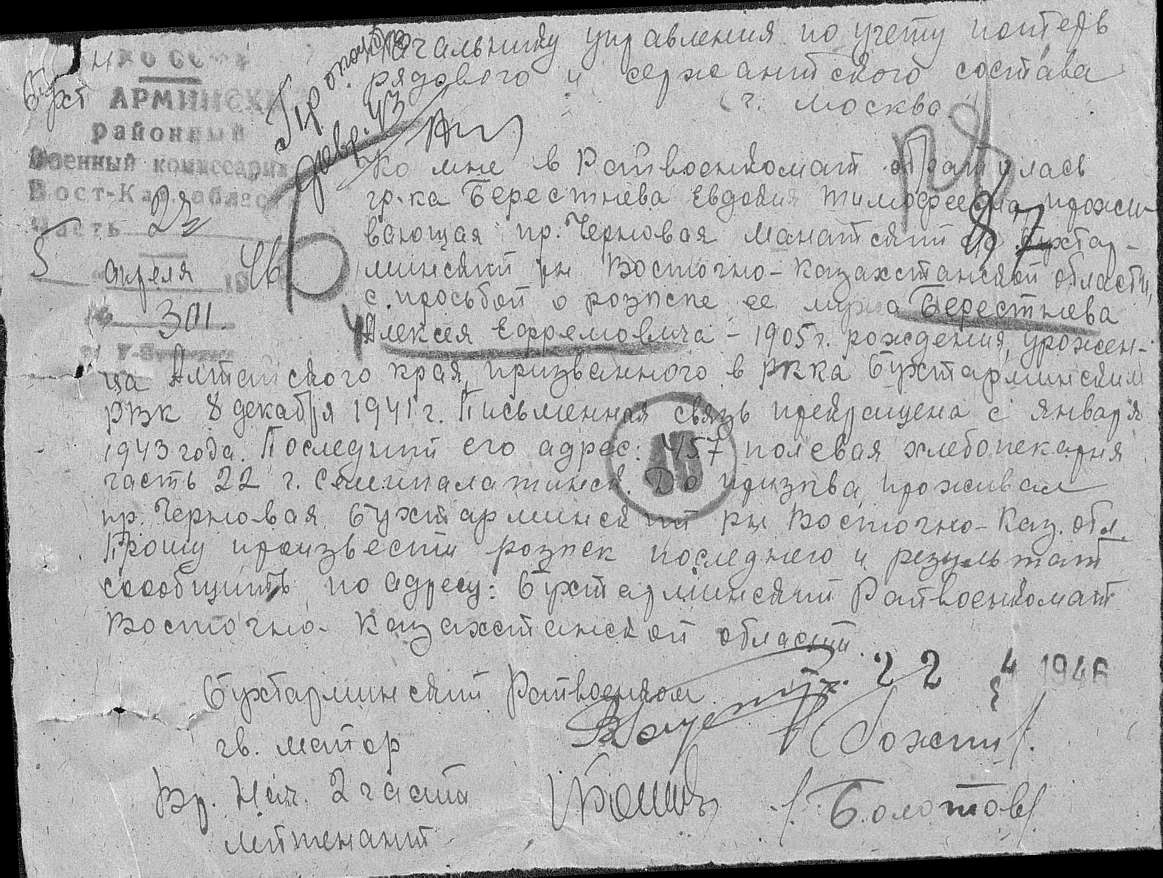 НКО СССР
Бухт АРМИНСКИ
районный
Военный комиссариат
Вост-Каз. област
Часть 2я
5 апреля 1946
№ 301.
Начальнику управления по учету потерь
рядового и сержантского состава
г. Москва
Ко мне в Райвоенкомат обратилась
гр-ка Берестнева Евдокия Тимофеевна, прожи-
вающая пр. Черновая Бухтар-
минский рн Восточно-Казахстанской области,
с просьбой о розыске ее мужа Берестнева
Алексея Ефремовича - 1905 г. рождения, урожен-
ца Алтайского края, призванного в РККА Бухтарминским
РВК 8 декабря 1941 г. Письменная связь прекращена с января
1943 года. Последний его адрес: 457 полевая хлебопекарня
часть 22 г. Семипалатинск. До призыва проживал
пр. Черновая Бухтарминский рн Восточно-Каз. обл.
Прошу произвести розыск последнего и результат
сообщить по адресу: Бухтарминский Райвоенкомат
Восточно-Казахстанской области.
22 4 1946
Бухтарминский Райвоенком
гв. майор
Вр. Нач. 2 части
лейтенант (Болотов)